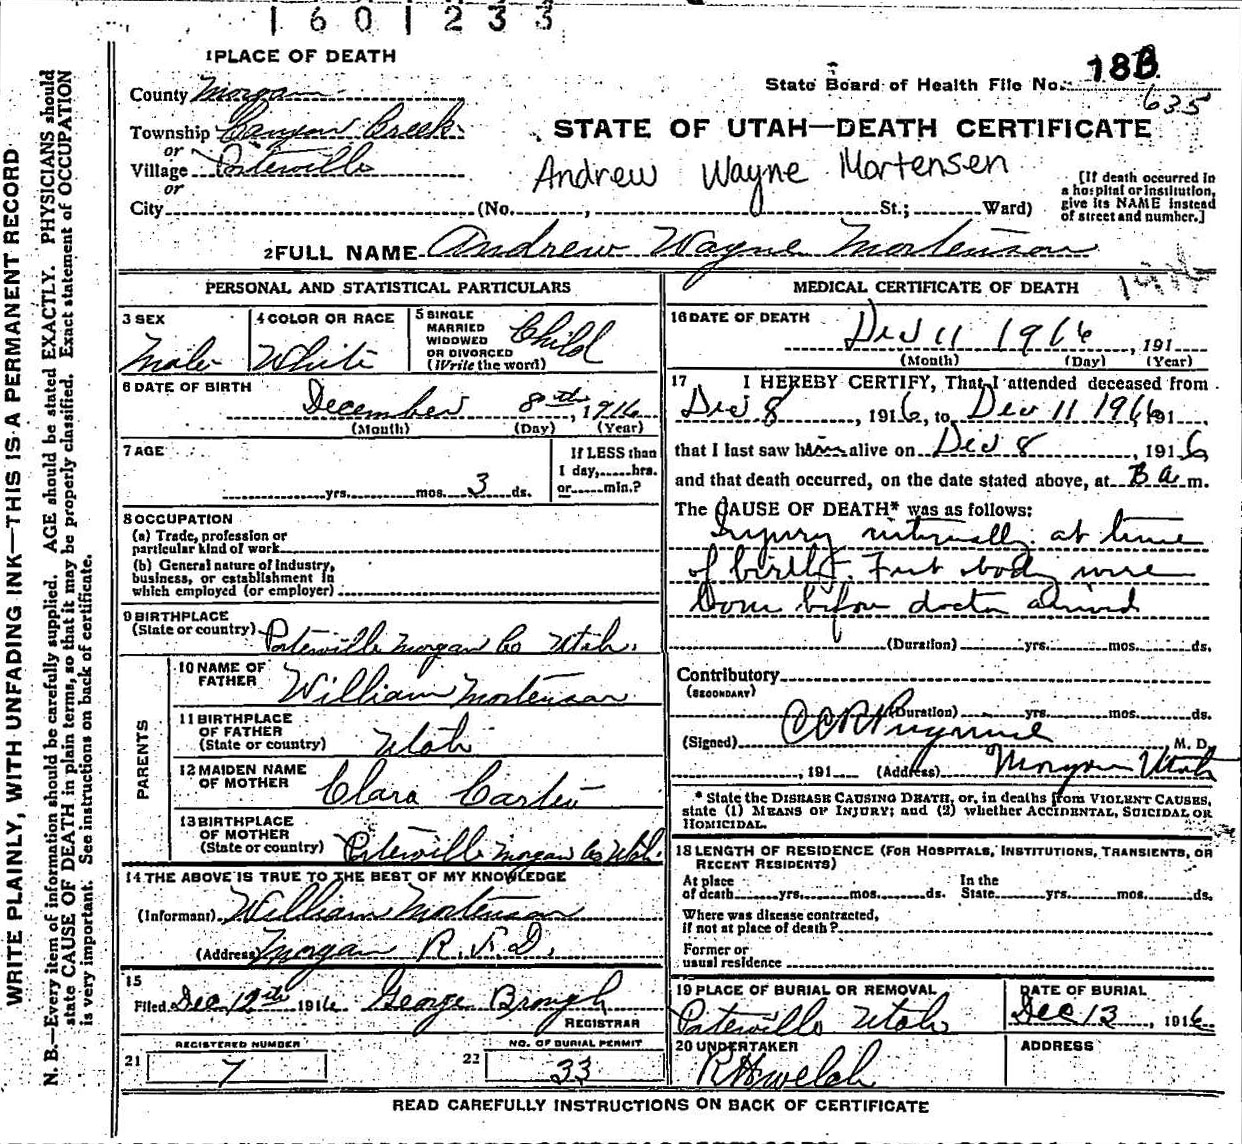 1601233
1 PLACE OF DEATH
188
State Board of Health File No.
635
County Morgan
Township Canyon Creek
or
Village Porterville
or
City (No. , St.; Ward)
STATE OF UTAH—DEATH CERTIFICATE
Andrew Wayne Mortensen
[If death occurred in
a hospital or institution,
give its NAME instead
of street and number.]
2 FULL NAME Andrew Wayne Mortenson
PERSONAL AND STATISTICAL PARTICULARS
3 SEX
Male
4 COLOR OR RACE
White
5 SINGLE
MARRIED
WIDOWED
OR DIVORCED
(Write the word)
Child
6 DATE OF BIRTH
December 8th, 1916
(Month) (Day) (Year)
7 AGE
yrs. mos. 3 ds.
If LESS than
1 day, hrs.
or min.?
8 OCCUPATION
(a) Trade, profession or
particular kind of work
(b) General nature of industry,
business, or establishment in
which employed (or employer)
9 BIRTHPLACE
(State or country) Porterville Morgan Co Utah.
PARENTS
10 NAME OF
FATHER William Mortenson
11 BIRTHPLACE
OF FATHER
(State or country) Utah
12 MAIDEN NAME
OF MOTHER Clara Carter
13 BIRTHPLACE
OF MOTHER
(State or country) Porterville Morgan Co Utah.
14 THE ABOVE IS TRUE TO THE BEST OF MY KNOWLEDGE
(Informant) William Mortenson
(Address) Morgan R.F.D.
15
Filed Dec 12th 1916 George Brough
REGISTRAR
21 REGISTERED NUMBER
7
22 NO. OF BURIAL PERMIT
33
MEDICAL CERTIFICATE OF DEATH
1916
16 DATE OF DEATH
Dec 11 1916, 191
(Month) (Day) (Year)
17 I HEREBY CERTIFY, That I attended deceased from
Dec 8, 1916, to Dec 11 1916, 191
that I last saw him alive on Dec 8, 1916
and that death occurred, on the date stated above, at 8 a m.
The CAUSE OF DEATH* was as follows:
Injury internally at time
of birth. Feet body were
born before doctor arrived
(Duration) yrs. mos. ds.
Contributory
(SECONDARY)
(Duration) yrs. mos. ds.
(Signed) M. D.
, 191 (Address) Morgan Utah
* State the DISEASE CAUSING DEATH, or, in deaths from VIOLENT CAUSES,
state (1) MEANS OF INJURY; and (2) whether ACCIDENTAL, SUICIDAL OR
HOMICIDAL.
18 LENGTH OF RESIDENCE (FOR HOSPITALS, INSTITUTIONS, TRANSIENTS, OR
RECENT RESIDENTS)
At place
of death yrs. mos. ds.
In the
State yrs. mos. ds.
Where was disease contracted,
if not at place of death?
Former or
usual residence
19 PLACE OF BURIAL OR REMOVAL
Porterville Utah
DATE OF BURIAL
Dec 13, 1916
20 UNDERTAKER
R H Welch
ADDRESS
READ CAREFULLY INSTRUCTIONS ON BACK OF CERTIFICATE
WRITE PLAINLY, WITH UNFADING INK—THIS IS A PERMANENT RECORD
N. B.—Every item of information should be carefully supplied. AGE should be stated EXACTLY. PHYSICIANS should
state CAUSE OF DEATH in plain terms, so that it may be properly classified. Exact statement of OCCUPATION
is very important. See instructions on back of certificate.